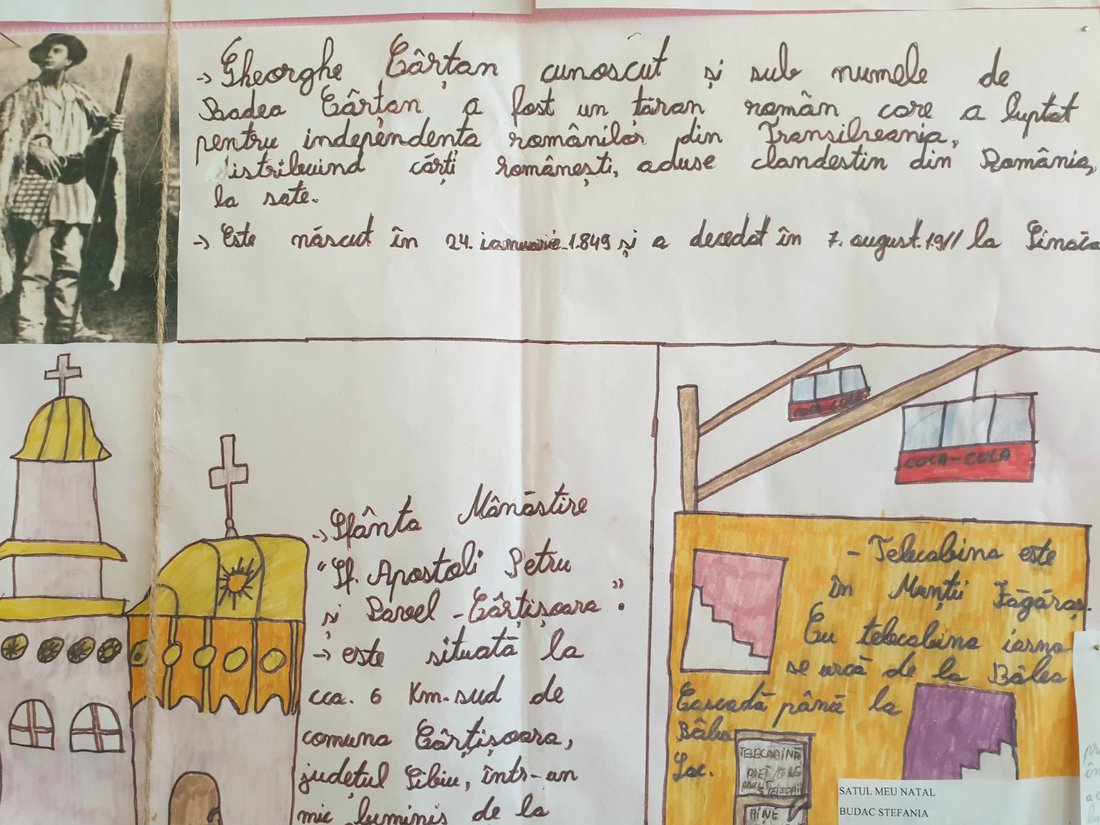 → Gheorghe Cârțan cunoscut și sub numele de
Badea Cârțan, a fost un țăran român care a luptat
pentru independența românilor din Transilvania,
distribuind cărți românești, aduse clandestin din România,
la sate.
→ Este născut în 24. ianuarie.1849 și a decedat în 7. august.1911 la Sinaia
COCA-COLA
COCA-COLA
→ Sfânta Mânăstire
"Sf. Apostoli Petru
și Pavel - Cârțișoara".
→ este situată la
cca. 6 Km. sud de
comuna Cârțișoara,
județul Sibiu, într-un
mic luminiș de la
- Telecabina este
în Munții Făgăraș.
Cu telecabina iarna
se urcă de la Bâlea
Cascadă până la
Bâlea
Lac.
TELECABINA
SATUL MEU NATAL
BUDAC STEFANIA